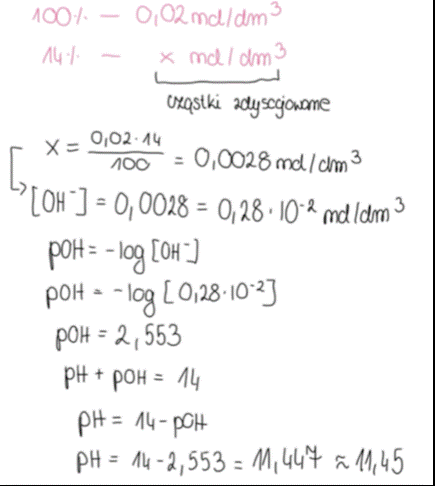 100% – 0,02 mol/dm³
14% – x mol/dm³
cząstki zdysocjowane
x = 0,02·14 / 100 = 0,0028 mol/dm³
[OH⁻] = 0,0028 = 0,28·10⁻² mol/dm³
pOH = -log [OH⁻]
pOH = -log [0,28·10⁻²]
pOH = 2,553
pH + pOH = 14
pH = 14 - pOH
pH = 14 - 2,553 = 11,447 ≈ 11,45